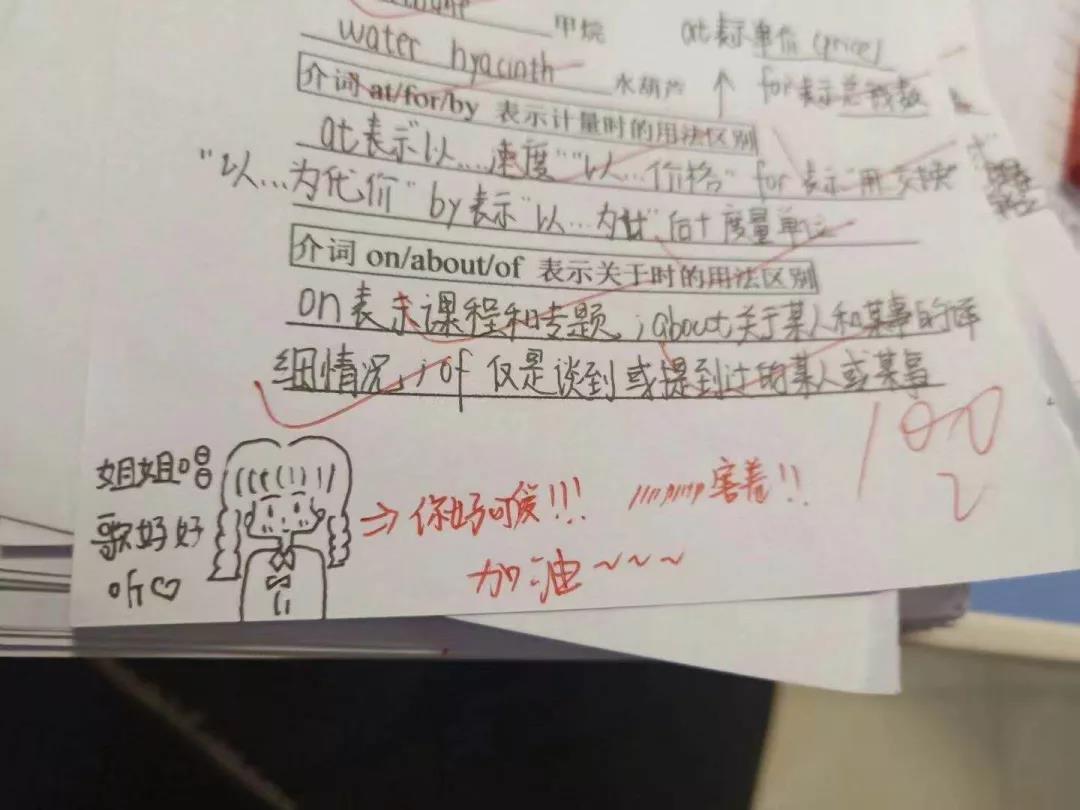 甲烷
at表示单价 (price)
water hyacinth 水葫芦
↑ for表示总钱数
介词 at/for/by 表示计量时的用法区别
at表示“以....速度”“以...价格” for 表示“用...交换”
“以...为代价” by表示“以...为计”,后+度量单位
介词 on/about/of 表示关于时的用法区别
on表示课程和专题,;about关于某人和某事的详
细情况,;of 仅是谈到或提到过的某人或某事
100
2
姐姐唱
歌好好
听♡
⇒ 你好可爱!!! 害羞!!
加油~~~